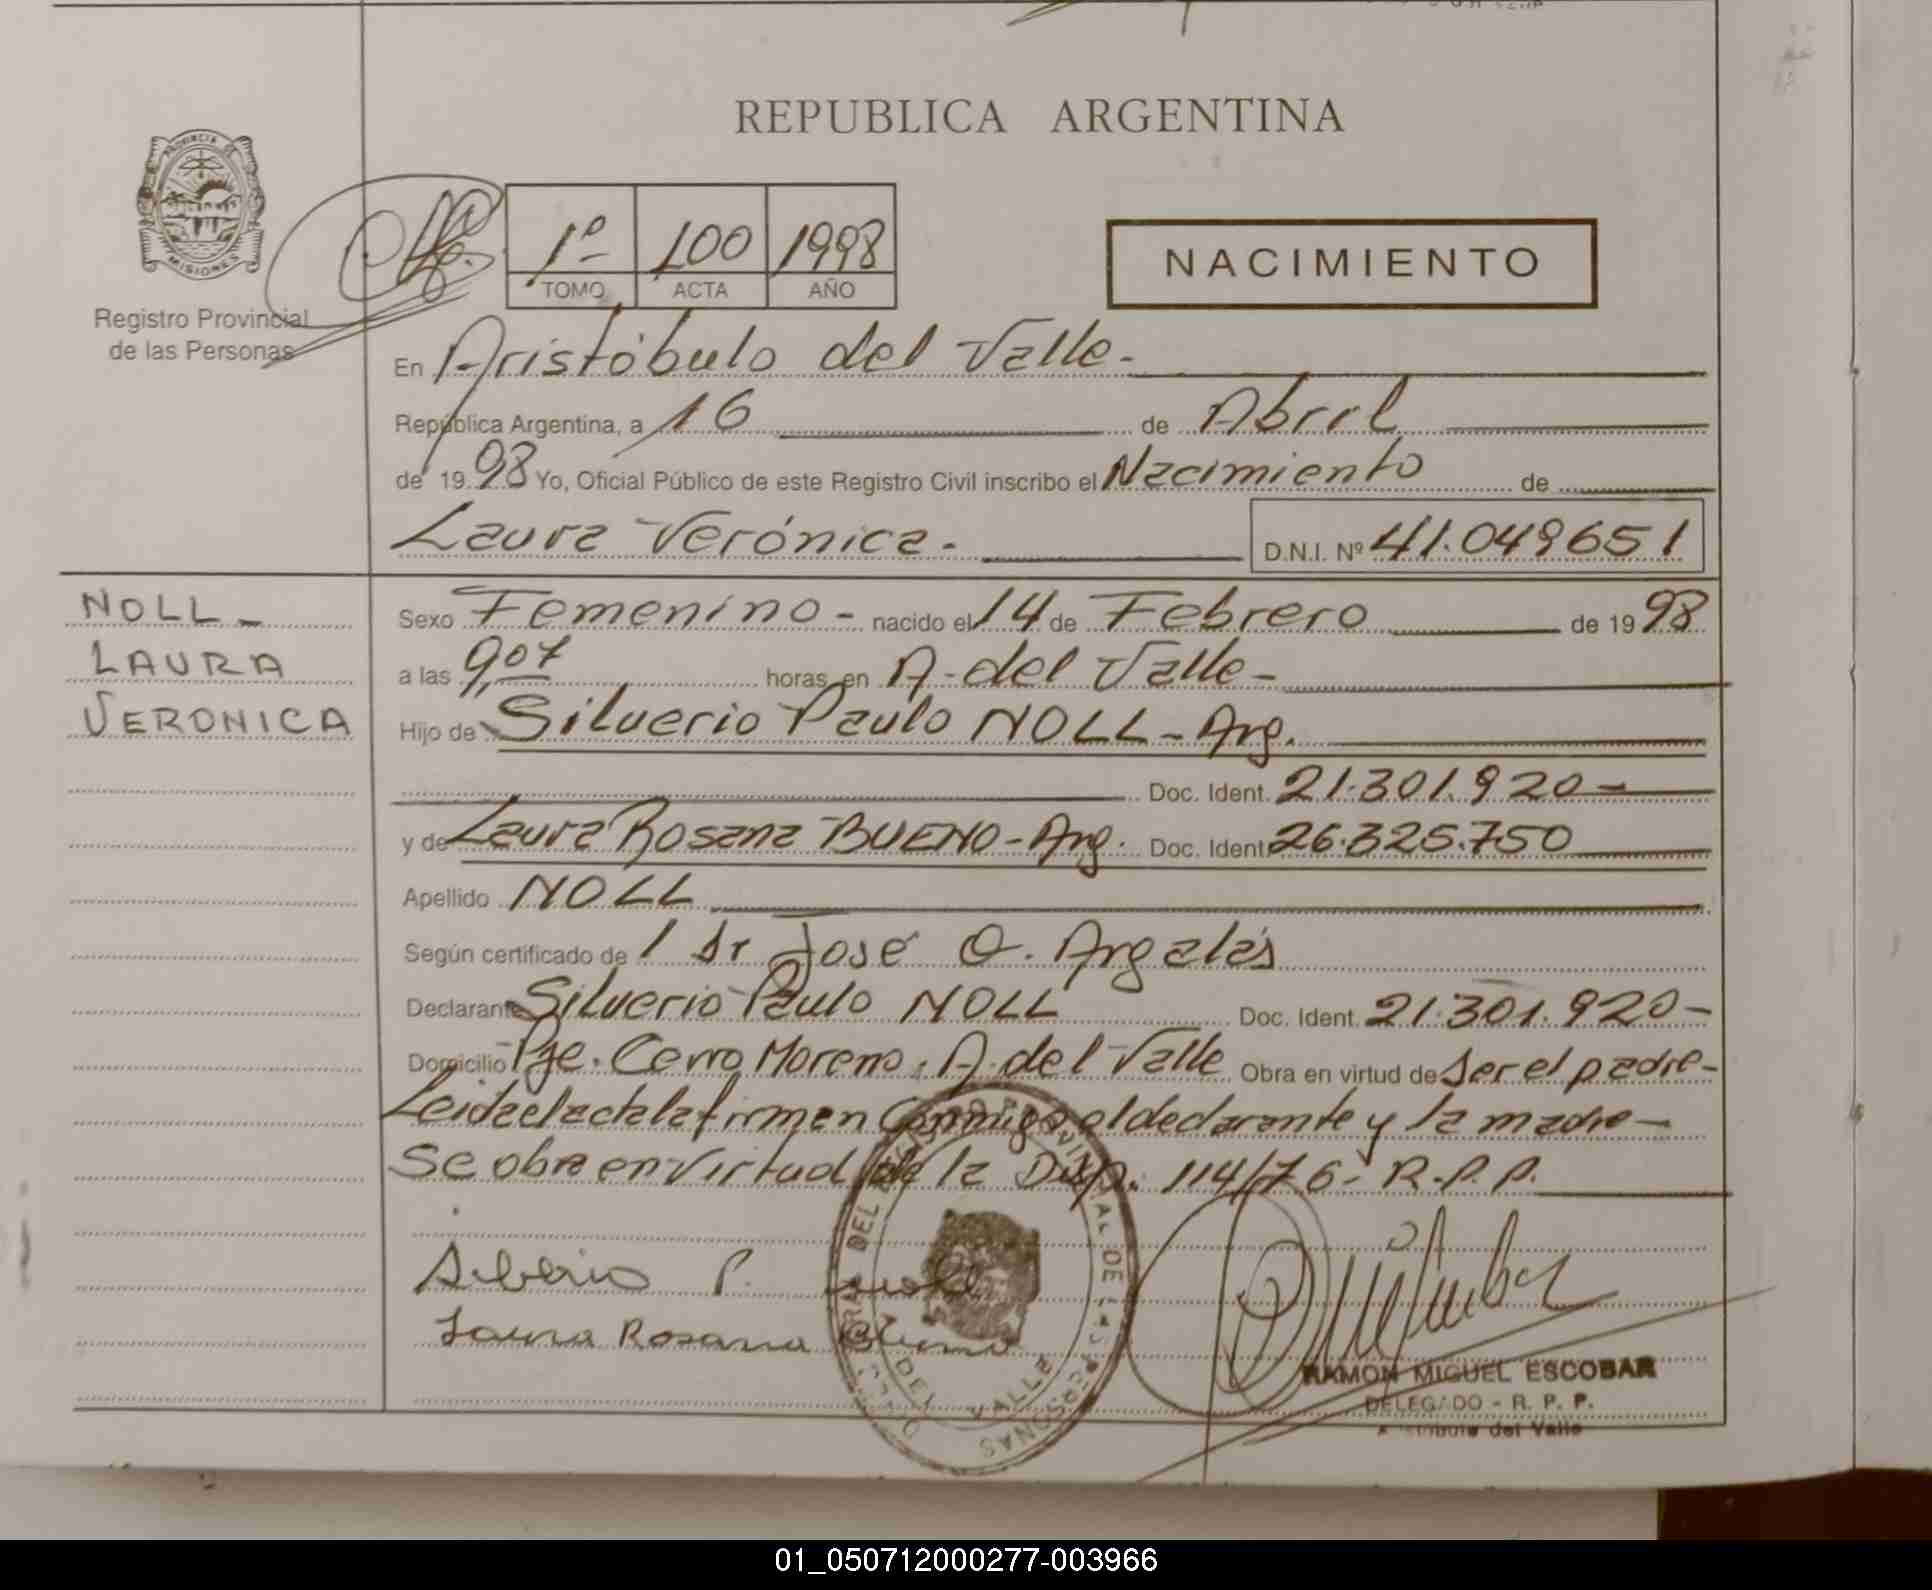 REPUBLICA ARGENTINA
PROVINCIA DE
MISIONES
Registro Provincial
de las Personas
1º 100 1998
TOMO ACTA AÑO
NACIMIENTO
En Aristóbulo del Valle-
República Argentina, a 16 de Abril
de 1998 Yo, Oficial Público de este Registro Civil inscribo el Nacimiento de
Laura Verónica.- D.N.I. Nº 41.049651
NOLL-
LAURA
VERONICA
Sexo Femenino- nacido el 14 de Febrero de 1998
a las 9,07 horas en A. del Valle-
Hijo de Silverio Paulo NOLL-Arg.
Doc. Ident. 21.301.920-
y de Laura Rosana BUENO-Arg. Doc. Ident. 26.325.750
Apellido NOLL
Según certificado de José O.
Declarante Silverio Paulo NOLL Doc. Ident. 21.301.920-
Domicilio Pje. Cerro Moreno, A. del Valle Obra en virtud de ser el padre-
Leida el acta la firman conmigo el declarante y la madre-
Se obra en virtud de la Disp. 114/76- R.P.P.
Silverio P. Noll
Laura Rosana Bueno
DEL VALLE
RAMON MIGUEL ESCOBAR
DELEGADO - R. P. P.
del Valle
01_050712000277-003966